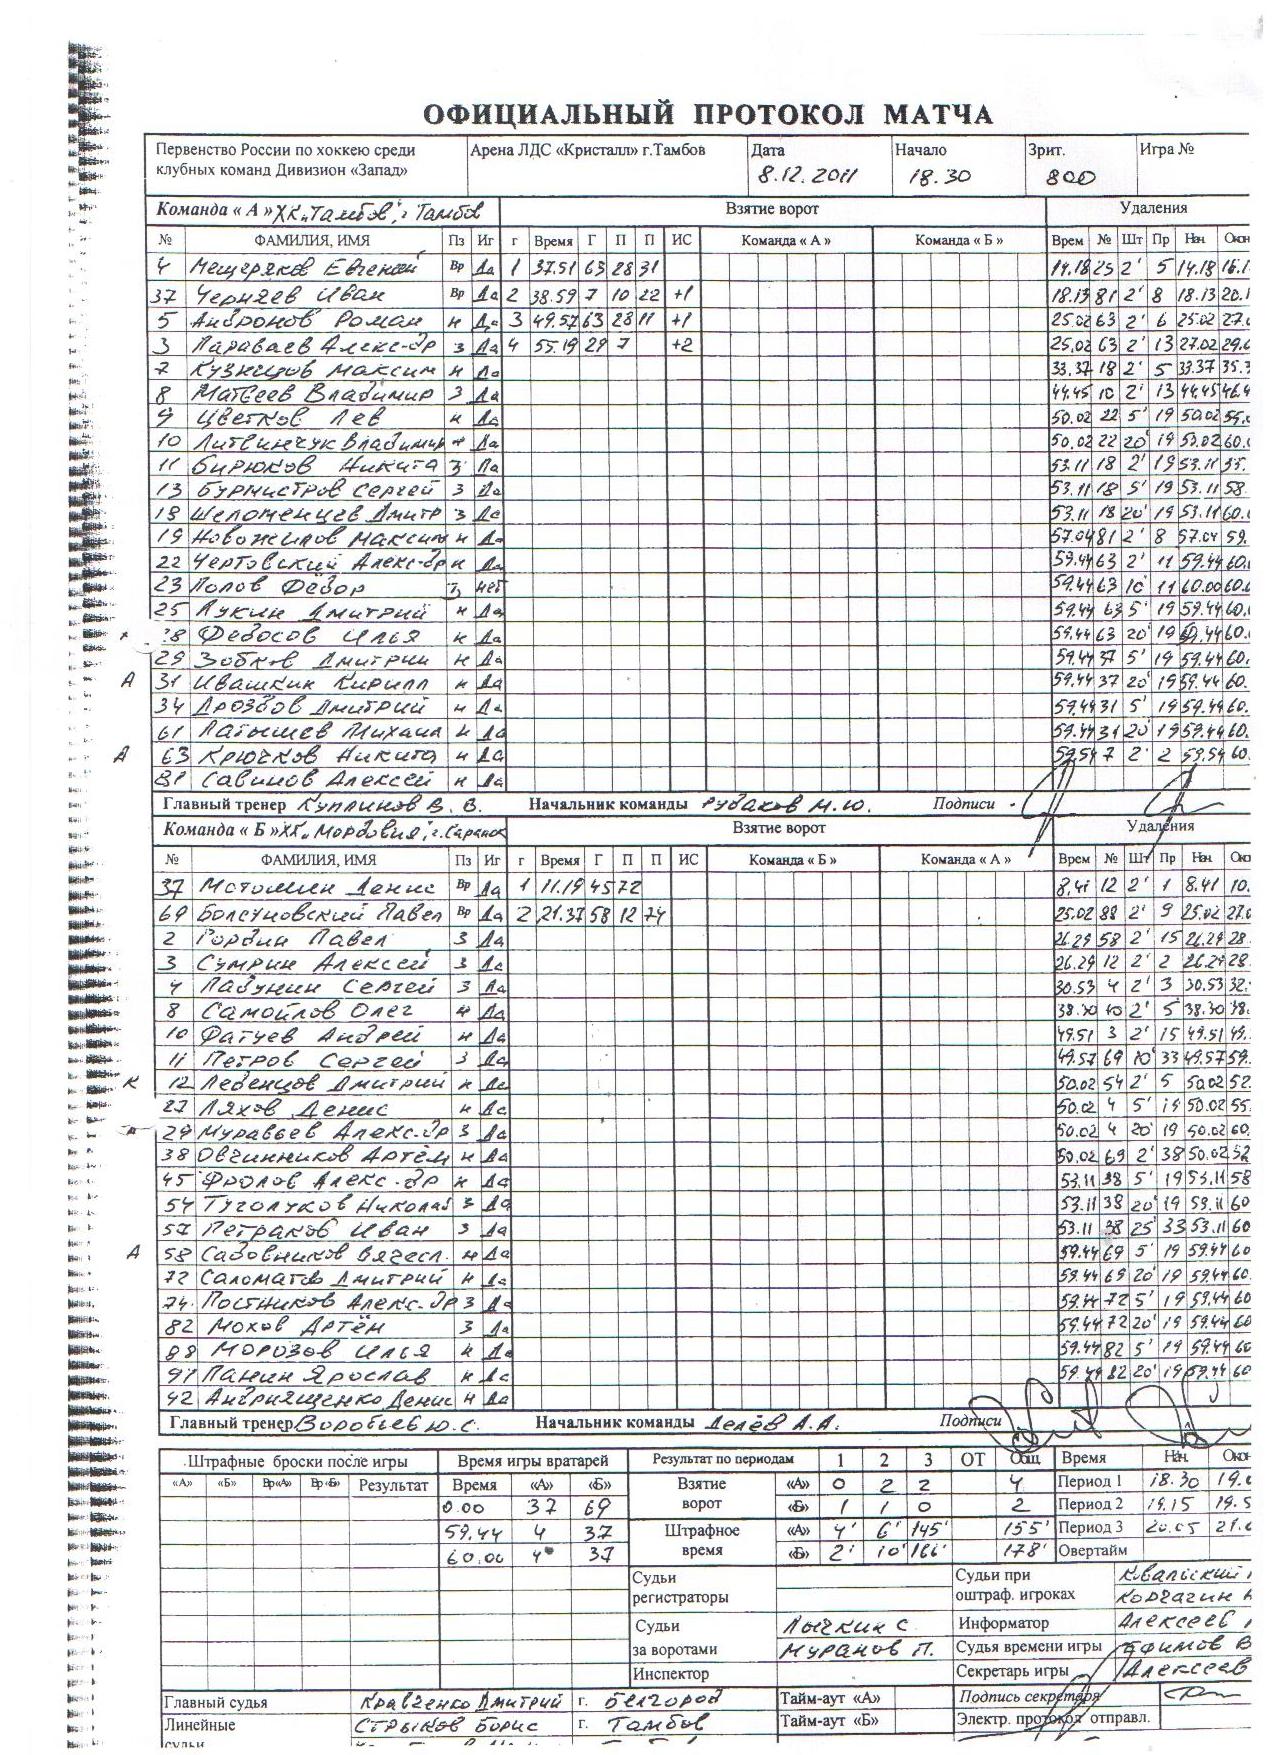 ОФИЦИАЛЬНЫЙ ПРОТОКОЛ МАТЧА
Первенство России по хоккею среди клубных команд Дивизион «Запад» Арена ЛДС «Кристалл» г.Тамбов Дата 8.12.2011 Начало 18.30 Зрит. 800 Игра №
Команда « А » ХК „Тамбов", г. Тамбов Взятие ворот Удаления
№ ФАМИЛИЯ, ИМЯ Пз Иг г Время Г П П ИС Команда « А » Команда « Б » Врем № Шт Пр Нач. Окон
4 Мещеряков Евгений Вр Да 1 37.51 63 28 31 14.18 25 2' 5 14.18 16.1
37 Черняев Иван Вр Да 2 38.59 7 10 22 +1 18.13 81 2' 8 18.13 20.1
5 Андронов Роман н Да 3 49.57 63 28 11 +1 25.02 63 2' 6 25.02 27.0
3 Параваев Алекс-др з Да 4 55.19 29 7 +2 25.02 63 2' 13 27.02 29.0
7 Кузнецов Максим н Да 33.37 18 2' 5 33.37 35.3
8 Матвеев Владимир з Да 44.45 10 2' 13 44.45 46.4
9 Цветков Лев н Да 50.02 22 5' 19 50.02 55.0
10 Литвинчук Владимир н Да 50.02 22 20' 19 50.02 60.0
11 Бирюков Никита з Да 53.11 18 2' 19 53.11 55.
13 Бурмистров Сергей з Да 53.11 18 5' 19 53.11 58.
18 Шеломенцев Дмитр з Да 53.11 18 20' 19 53.11 60.0
19 Новожилов Максим н Да 57.04 81 2' 8 57.04 59.
22 Чертовский Алекс-др н Да 59.44 63 2' 11 59.44 60.0
23 Попов Фёдор з нет 59.44 63 10' 11 60.00 60.0
25 Лукин Дмитрий н Да 59.44 63 5' 19 59.44 60.
28 Федосов Илья н Да 59.44 63 20' 19 59.44 60.
29 Зобков Дмитрий н Да 59.44 37 5' 19 59.44 60.
А 31 Ивашкин Кирилл н Да 59.44 37 20' 19 59.44 60.
34 Дроздов Дмитрий н Да 59.44 31 5' 19 59.44 60.
61 Латышев Михаил н Да 59.44 31 20' 19 59.44 60.
А 63 Крючков Никита н Да 59.54 7 2' 2 59.54 60.
81 Савинов Алексей н Да
Главный тренер Куплинов В. В. Начальник команды Рудаков М.Ю. Подписи
Команда « Б » ХК „Мордовия", г. Саранск Взятие ворот Удаления
№ ФАМИЛИЯ, ИМЯ Пз Иг г Время Г П П ИС Команда « Б » Команда « А » Врем № Шт Пр Нач. Окон
37 Денис Вр Да 1 11.19 45 72 8.41 12 2' 1 8.41 10.
69 Болсуновский Павел Вр Да 2 21.37 58 12 74 25.02 88 2' 9 25.02 27.0
2 Гордин Павел З Да 26.29 58 2' 15 26.29 28.
3 Сумрин Алексей З Да 26.29 12 2' 2 26.29 28.
4 Ладунин Сергей З Да 30.53 4 2' 3 30.53 32.
8 Самойлов Олег н Да 38.30 10 2' 5 38.30 38.
10 Фатуев Андрей н Да 49.51 3 2' 15 49.51 49.
11 Петров Сергей З Да 49.57 69 10' 33 49.57 59.
К 12 Леденцов Дмитрий н Да 50.02 54 2' 5 50.02 52.
27 Ляхов Денис н Да 50.02 4 5' 19 50.02 55.
А 29 Муравьев Алекс-др З Да 50.02 4 20' 19 50.02 60.
38 Овчинников Артём н Да 50.02 69 2' 38 50.02 52
45 Фролов Алекс-др н Да 53.11 38 5' 19 53.11 58
54 Туголуков Николай З Да 53.11 38 20' 19 53.11 60
57 Петраков Иван З Да 53.11 38 25' 33 53.11 60
А 58 Садовников Вячесл. н Да 59.44 69 5' 19 59.44 60
72 Саломатов Дмитрий н Да 59.44 69 20' 19 59.44 60.
74 Постников Алекс-др З Да 59.44 72 5' 19 59.44 60
82 Мохов Артём З Да 59.44 72 20' 19 59.44 60
88 Морозов Илья н Да 59.44 82 5' 19 59.44 60
97 Панин Ярослав н Да 59.44 82 20' 19 59.44 60
42 Андрющенко Денис н Да
Главный тренер Воробьев Ю.С. Начальник команды А.А. Подписи
Штрафные броски после игры Время игры вратарей Результат по периодам 1 2 3 ОТ Общ Время Нач. Окон
«А» «Б» Вр«А» Вр«Б» Результат Время «А» «Б» Взятие ворот «А» 0 2 2 4 Период 1 18.30 19.0
0.00 37 69 «Б» 1 1 0 2 Период 2 19.15 19.5
59.44 4 37 Штрафное время «А» 4' 6' 145' 155' Период 3 20.05 21.0
60.00 4 37 «Б» 2' 10' 166' 178' Овертайм
Судьи регистраторы Судьи при оштраф. игроках Ковальский
Корчагин
Судьи за воротами Лычкин С Информатор Алексеев
Муранов П. Судья времени игры Ефимов В
Инспектор Секретарь игры Алексеев
Главный судья Кравченко Дмитрий г. Белгород Тайм-аут «А» Подпись секретаря
Линейные судьи Стрыков Борис г. Тамбов Тайм-аут «Б» Электр. протокол отправл.